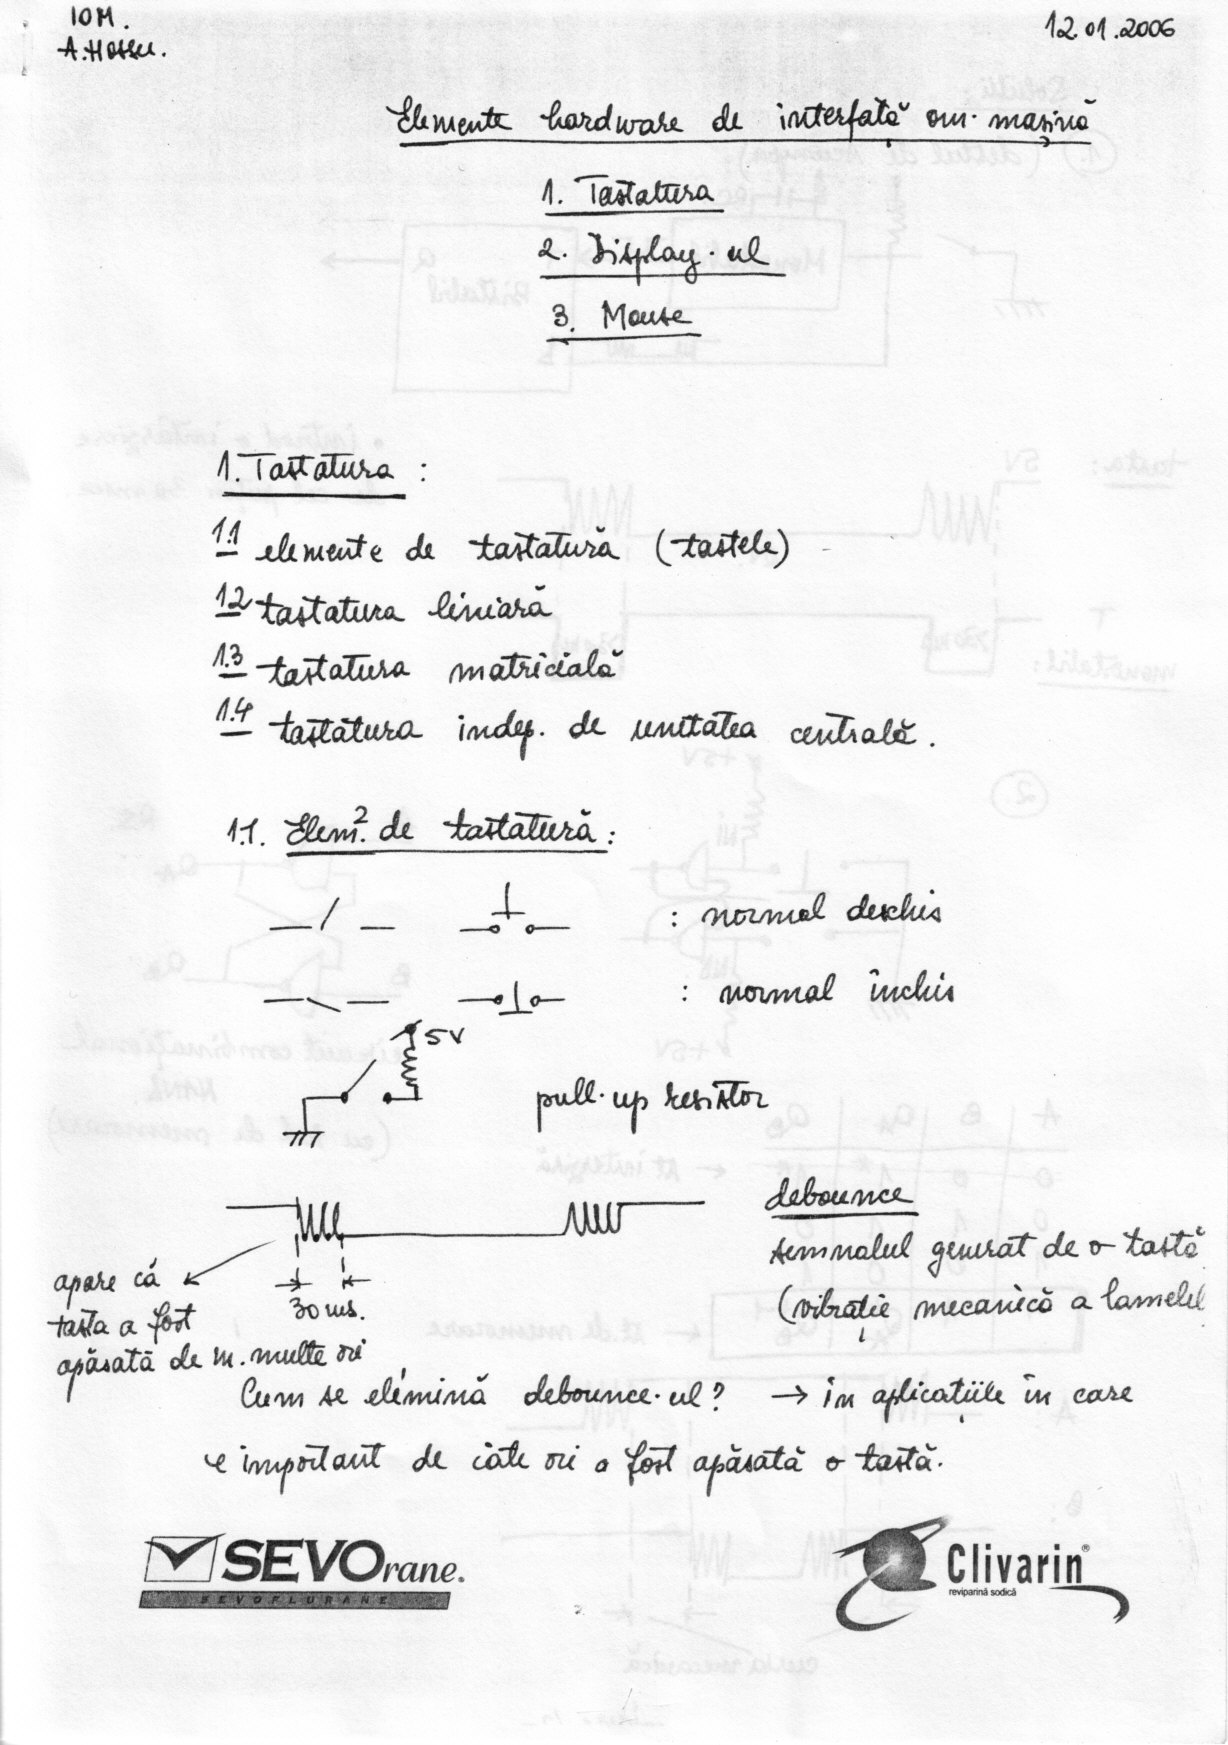 IOM.
12.01.2006
A. Hossu.
Elemente hardware de interfață om-mașină
1. Tastatura
2. Display-ul
3. Mouse
1. Tastatura :
1.1 elemente de tastatură (tastele)
1.2 tastatura liniară
1.3 tastatura matricială
1.4 tastatura indep. de unitatea centrală.
1.1. Elem. de tastatură :
: normal deschis
: normal închis
5V
pull-up resistor
debounce
semnalul generat de o tastă
(vibrație mecanică a lamelei
30 ms.
apare că
tasta a fost
apăsată de m. multe ori
Cum se elimină debounce-ul? → în aplicațiile în care
e important de câte ori a fost apăsată o tastă.
SEVOrane.
SEVOFLURANE
Clivarin®
reviparină sodică